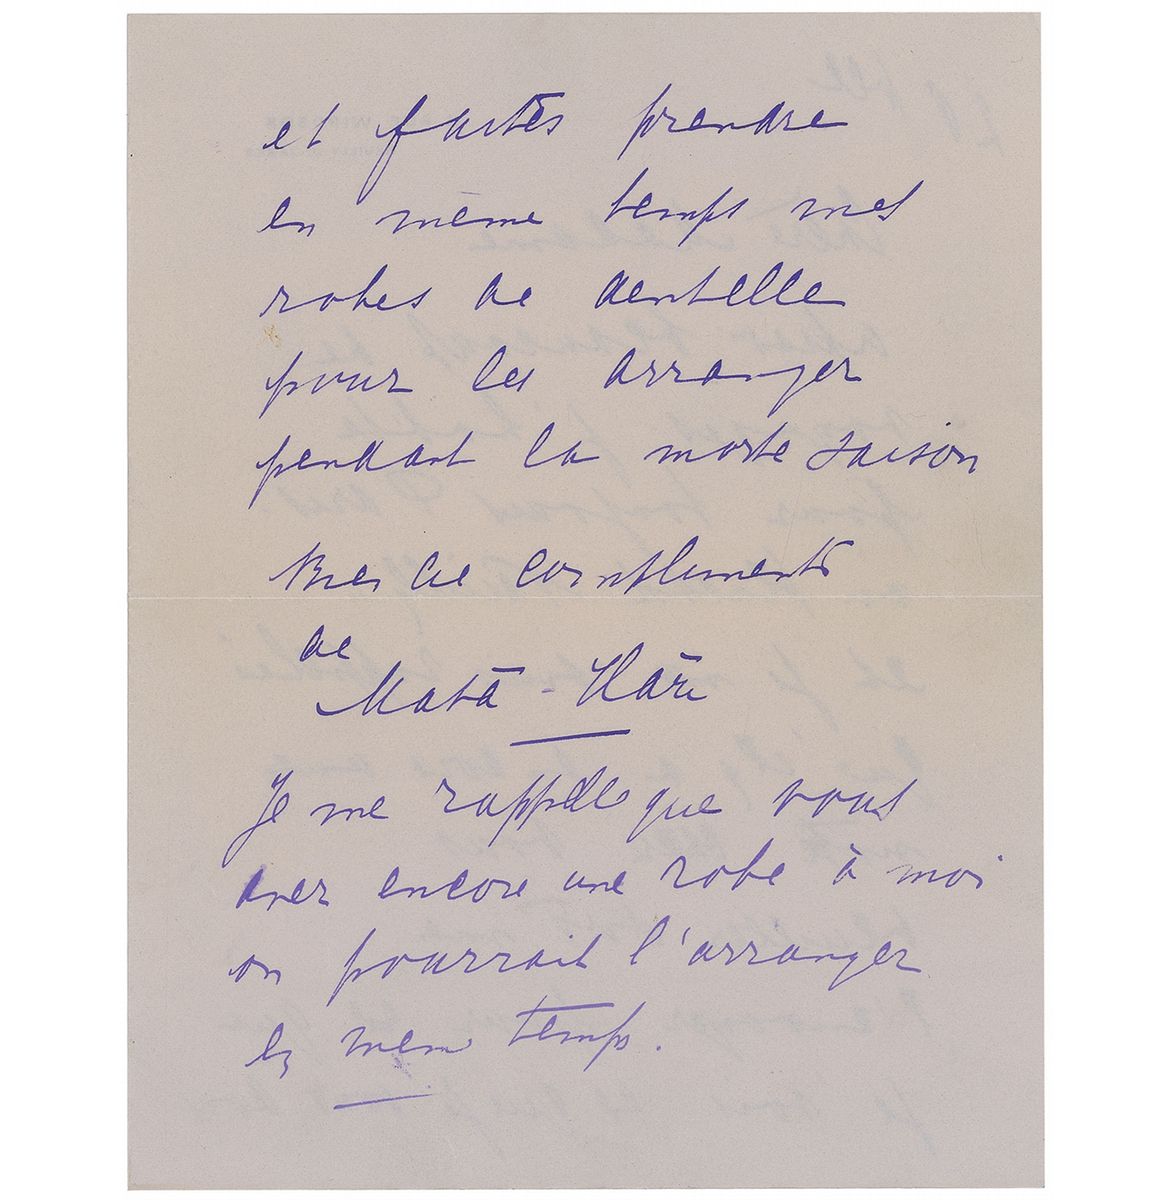 et faites prendre
en même temps mes
robes de dentelle
pour les arranger
pendant la morte saison
compliments
de
Matā-Hāri
Je me rappelle que vous
avez encore une robe à moi
on pourrait l'arranger
en mem temps.